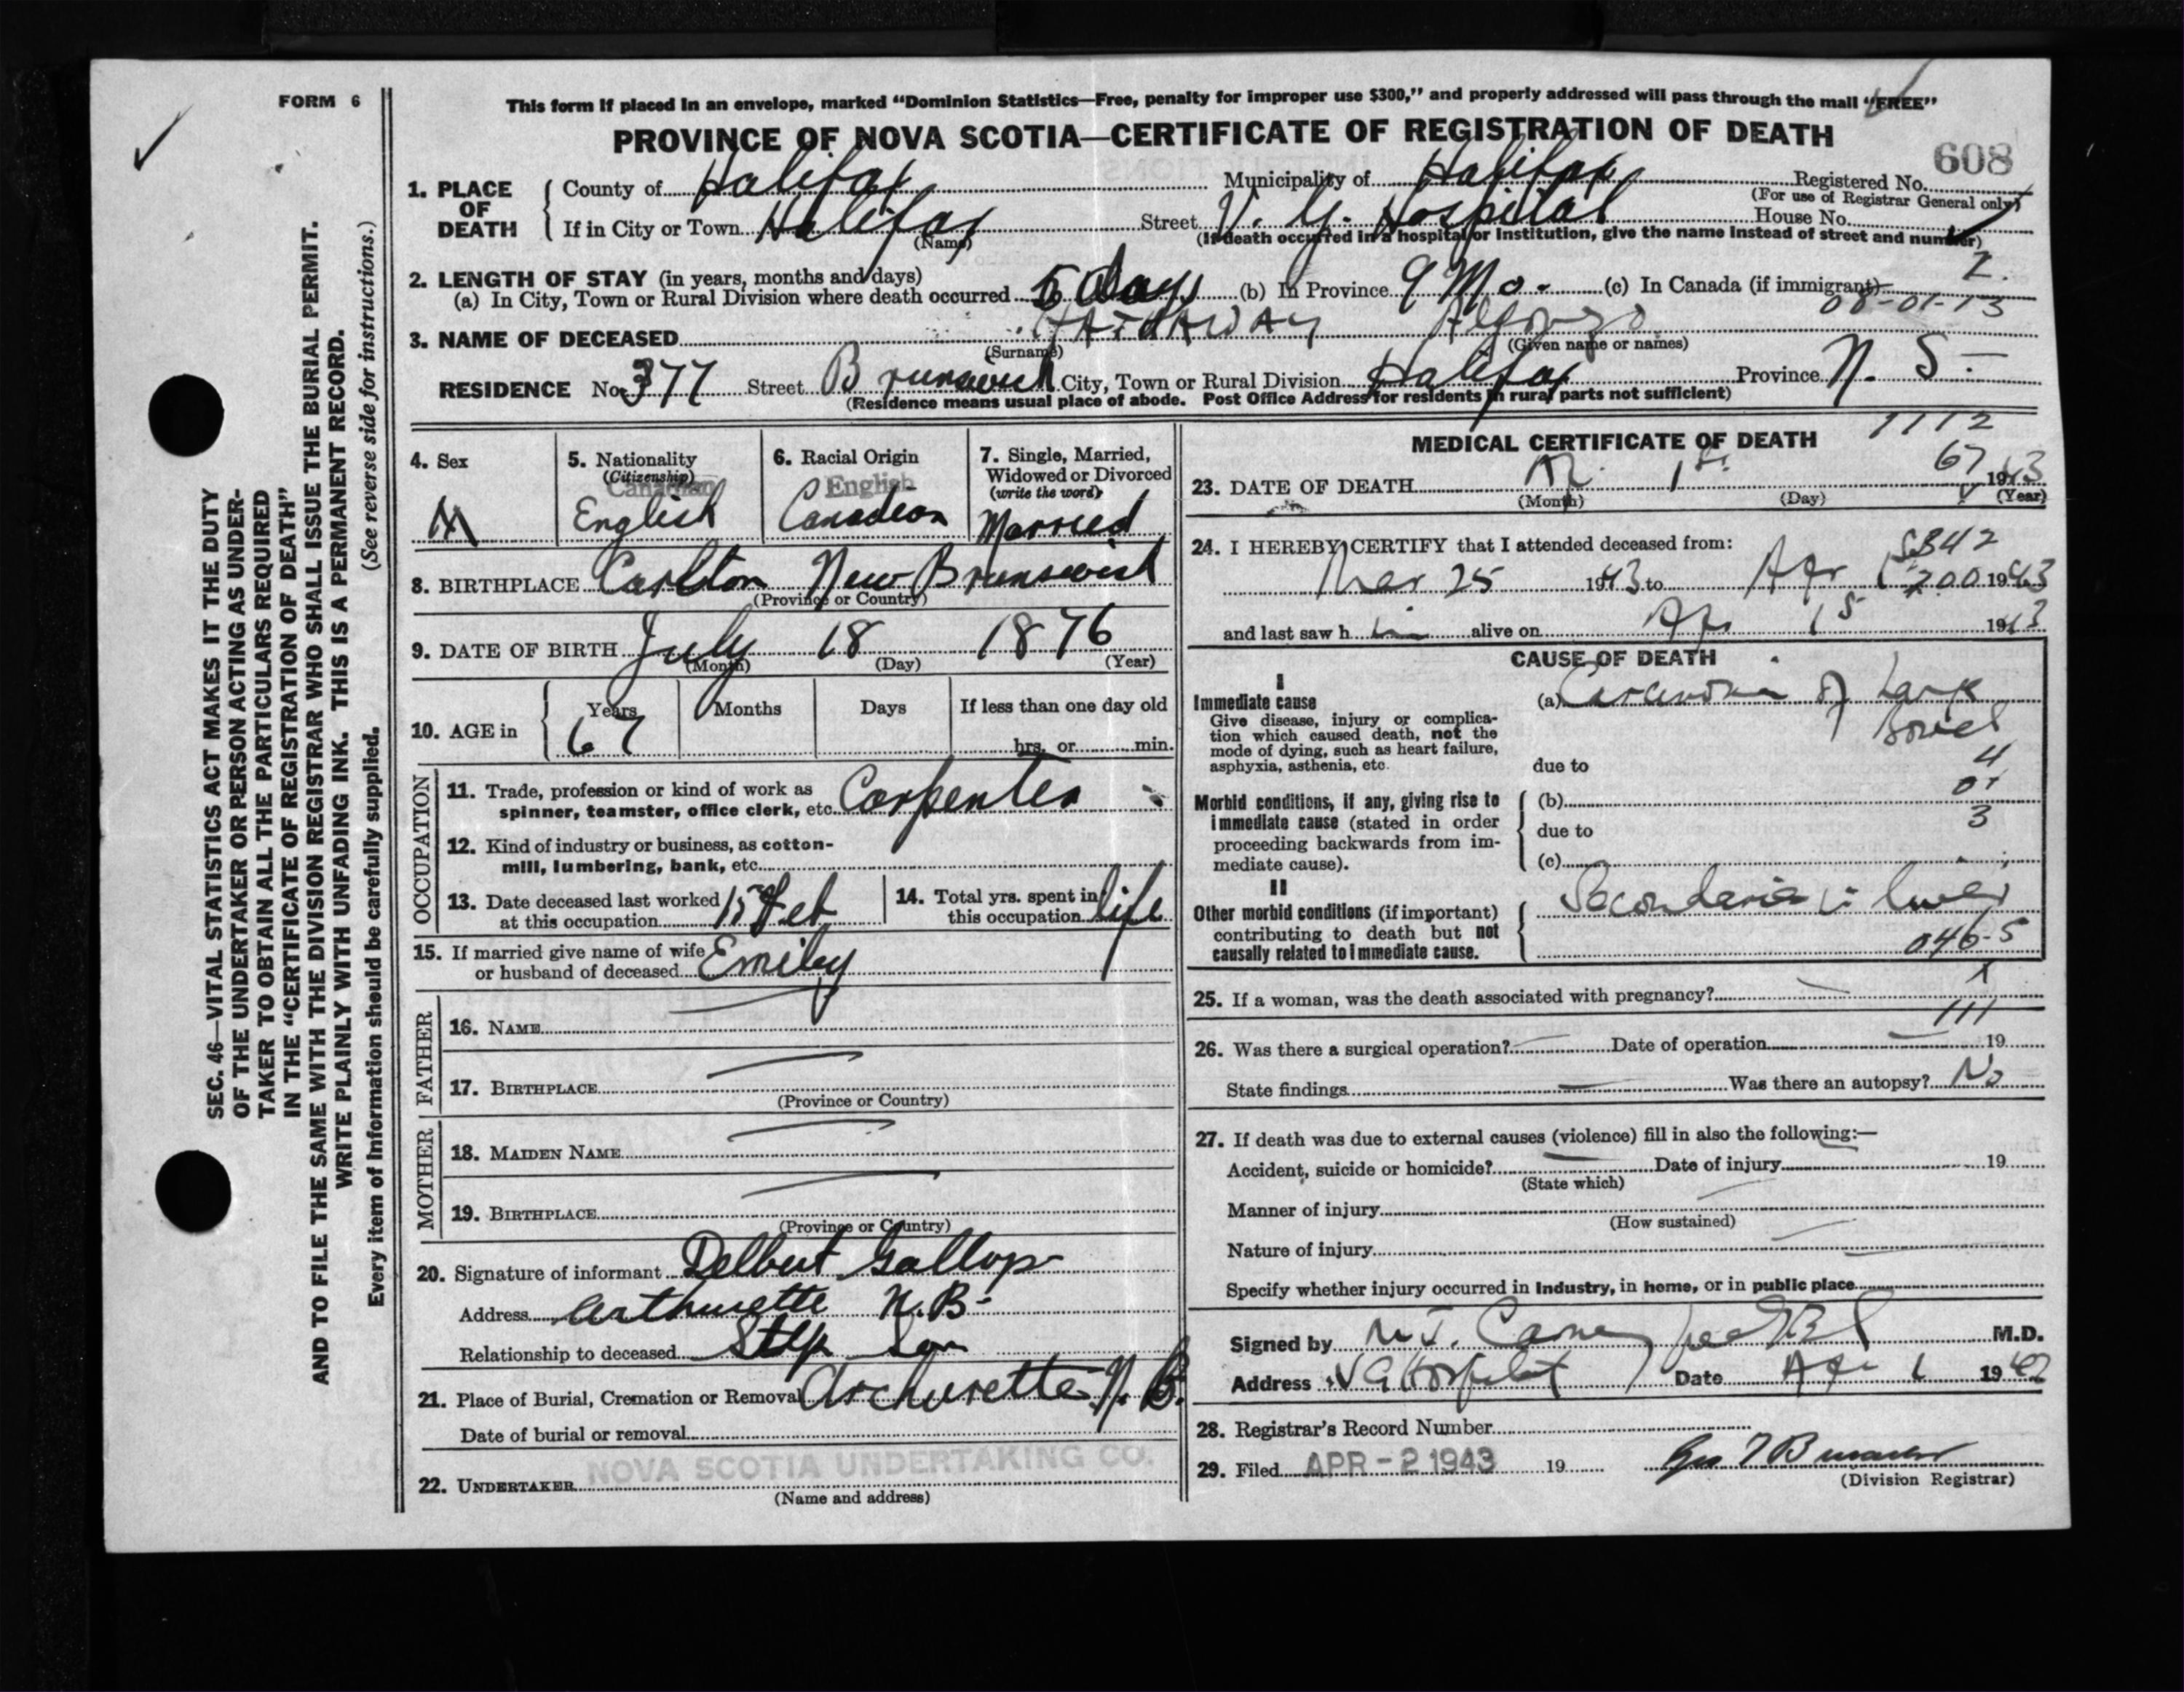 FORM 6
This form if placed in an envelope, marked “Dominion Statistics—Free, penalty for improper use $300,” and properly addressed will pass through the mail “FREE”
PROVINCE OF NOVA SCOTIA—CERTIFICATE OF REGISTRATION OF DEATH
608
1. PLACE OF DEATH
County of Halifax Municipality of Halifax Registered No.
(For use of Registrar General only)
If in City or Town Halifax Street V. G. Hospital House No.
(Name) (If death occurred in a hospital or institution, give the name instead of street and number)
2. LENGTH OF STAY (in years, months and days)
(a) In City, Town or Rural Division where death occurred 5 Days (b) In Province 9 Mo. (c) In Canada (if immigrant)
2.
08-01-13
3. NAME OF DECEASED HATHAWAY Alfonzo
(Surname) (Given name or names)
RESIDENCE No. 377 Street Brunswick City, Town or Rural Division Halifax Province N. S.
(Residence means usual place of abode. Post Office Address for residents in rural parts not sufficient)
4. Sex M
5. Nationality (Citizenship) Canadian English
6. Racial Origin English Canadian
7. Single, Married, Widowed or Divorced (write the word) Married
8. BIRTHPLACE Carlton New Brunswick
(Province or Country)
9. DATE OF BIRTH July 18 1876
(Month) (Day) (Year)
10. AGE in Years Months Days If less than one day old
67 hrs. or min.
OCCUPATION
11. Trade, profession or kind of work as
spinner, teamster, office clerk, etc. Carpenter
12. Kind of industry or business, as cotton-
mill, lumbering, bank, etc.
13. Date deceased last worked at this occupation 15 Feb
14. Total yrs. spent in this occupation life
15. If married give name of wife
or husband of deceased Emily
FATHER
16. NAME
17. BIRTHPLACE
(Province or Country)
MOTHER
18. MAIDEN NAME
19. BIRTHPLACE
(Province or Country)
20. Signature of informant Delbert Gallop
Address Arthurette N.B-
Relationship to deceased Step Son
21. Place of Burial, Cremation or Removal Archurette N. B.
Date of burial or removal
22. UNDERTAKER NOVA SCOTIA UNDERTAKING CO.
(Name and address)
MEDICAL CERTIFICATE OF DEATH
1112
67
23. DATE OF DEATH Ap. 1st 1943
(Month) (Day) (Year)
24. I HEREBY CERTIFY that I attended deceased from:
Mar 25 1943 to Apr 1st 1943
200
and last saw him alive on Apr 1st 1943
CAUSE OF DEATH
I
Immediate cause
Give disease, injury or complica-
tion which caused death, not the
mode of dying, such as heart failure,
asphyxia, asthenia, etc.
(a) Carcinoma of Large Bowel
due to
4
01
3
Morbid conditions, if any, giving rise to
immediate cause (stated in order
proceeding backwards from im-
mediate cause).
(b)
due to
(c)
II
Other morbid conditions (if important)
contributing to death but not
causally related to immediate cause.
Secondaries in liver
046-5
25. If a woman, was the death associated with pregnancy?
x
111
26. Was there a surgical operation? Date of operation 19
State findings Was there an autopsy? No
27. If death was due to external causes (violence) fill in also the following:—
Accident, suicide or homicide? Date of injury 19
(State which)
Manner of injury
(How sustained)
Nature of injury
Specify whether injury occurred in industry, in home, or in public place
Signed by M.D.
Address V G Hospital Date Apr 1 19
28. Registrar's Record Number
29. Filed APR -2 1943 19
(Division Registrar)
SEC. 46—VITAL STATISTICS ACT MAKES IT THE DUTY
OF THE UNDERTAKER OR PERSON ACTING AS UNDER-
TAKER TO OBTAIN ALL THE PARTICULARS REQUIRED
IN THE “CERTIFICATE OF REGISTRATION OF DEATH”
AND TO FILE THE SAME WITH THE DIVISION REGISTRAR WHO SHALL ISSUE THE BURIAL PERMIT.
WRITE PLAINLY WITH UNFADING INK. THIS IS A PERMANENT RECORD.
Every item of information should be carefully supplied. (See reverse side for instructions.)